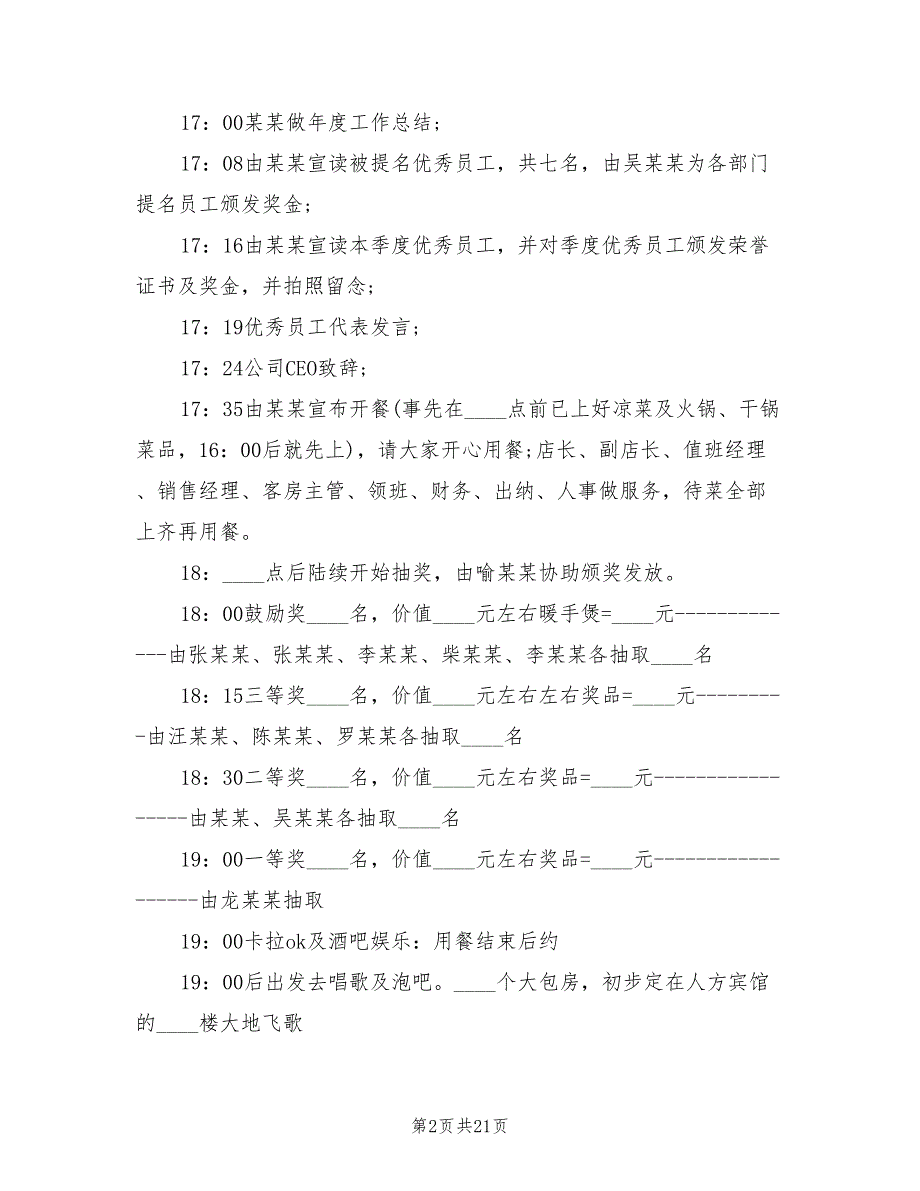 17：00某某做年度工作总结;
17：08由某某宣读被提名优秀员工，共七名，由吴某某为各部门
提名员工颁发奖金;
17：16由某某宣读本季度优秀员工，并对季度优秀员工颁发荣誉
证书及奖金，并拍照留念;
17：19优秀员工代表发言;
17：24公司CEO致辞;
17：35由某某宣布开餐(事先在____点前已上好凉菜及火锅、干锅
菜品，16：00后就先上)，请大家开心用餐;店长、副店长、值班经理
、销售经理、客房主管、领班、财务、出纳、人事做服务，待菜全部
上齐再用餐。
18：____点后陆续开始抽奖，由喻某某协助颁奖发放。
18：00鼓励奖____名，价值____元左右暖手煲=____元-------------
---由张某某、张某某、李某某、柴某某、李某某各抽取____名
18：15三等奖____名，价值____元左右左右奖品=____元-----------
-由汪某某、陈某某、罗某某各抽取____名
18：30二等奖____名，价值____元左右奖品=____元---------------
-----由某某、吴某某各抽取____名
19：00一等奖____名，价值____元左右奖品=____元---------------
------由龙某某抽取
19：00卡拉ok及酒吧娱乐：用餐结束后约
19：00后出发去唱歌及泡吧。____个大包房，初步定在人方宾馆
的____楼大地飞歌
第2页共21页